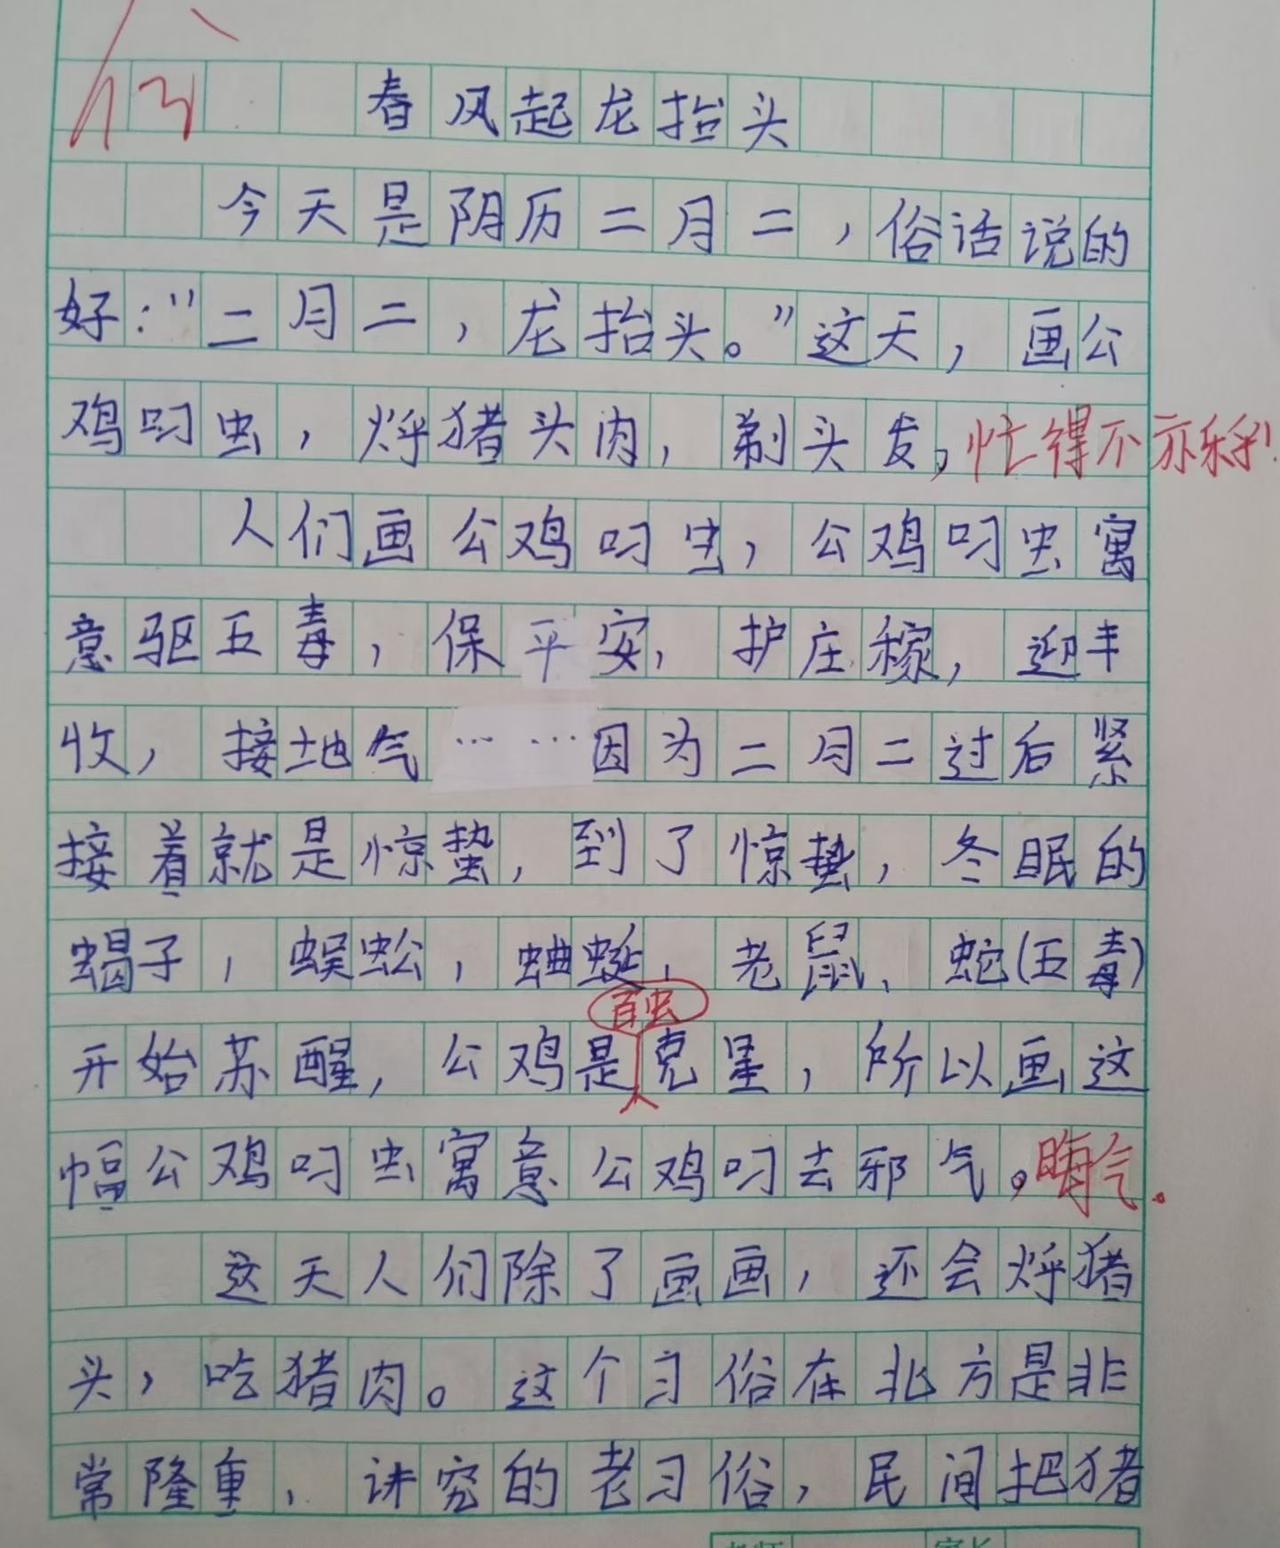 春风起龙抬头
今天是阴历二月二，俗话说的
好：“二月二，龙抬头。”这天，画公
鸡叼虫，烀猪头肉，剃头发，忙得不亦乐乎！
人们画公鸡叼虫，公鸡叼虫寓
意驱五毒，保平安，护庄稼，迎丰
收，接地气……因为二月二过后紧
接着就是惊蛰，到了惊蛰，冬眠的
蝎子，蜈蚣，蛐蜒，老鼠、蛇（五毒）
百虫
开始苏醒，公鸡是克星，所以画这
幅公鸡叼虫寓意公鸡叼去邪气。晦气。
这天人们除了画画，还会烀猪
头，吃猪肉。这个习俗在北方是非
常隆重，讲究的老习俗，民间把猪